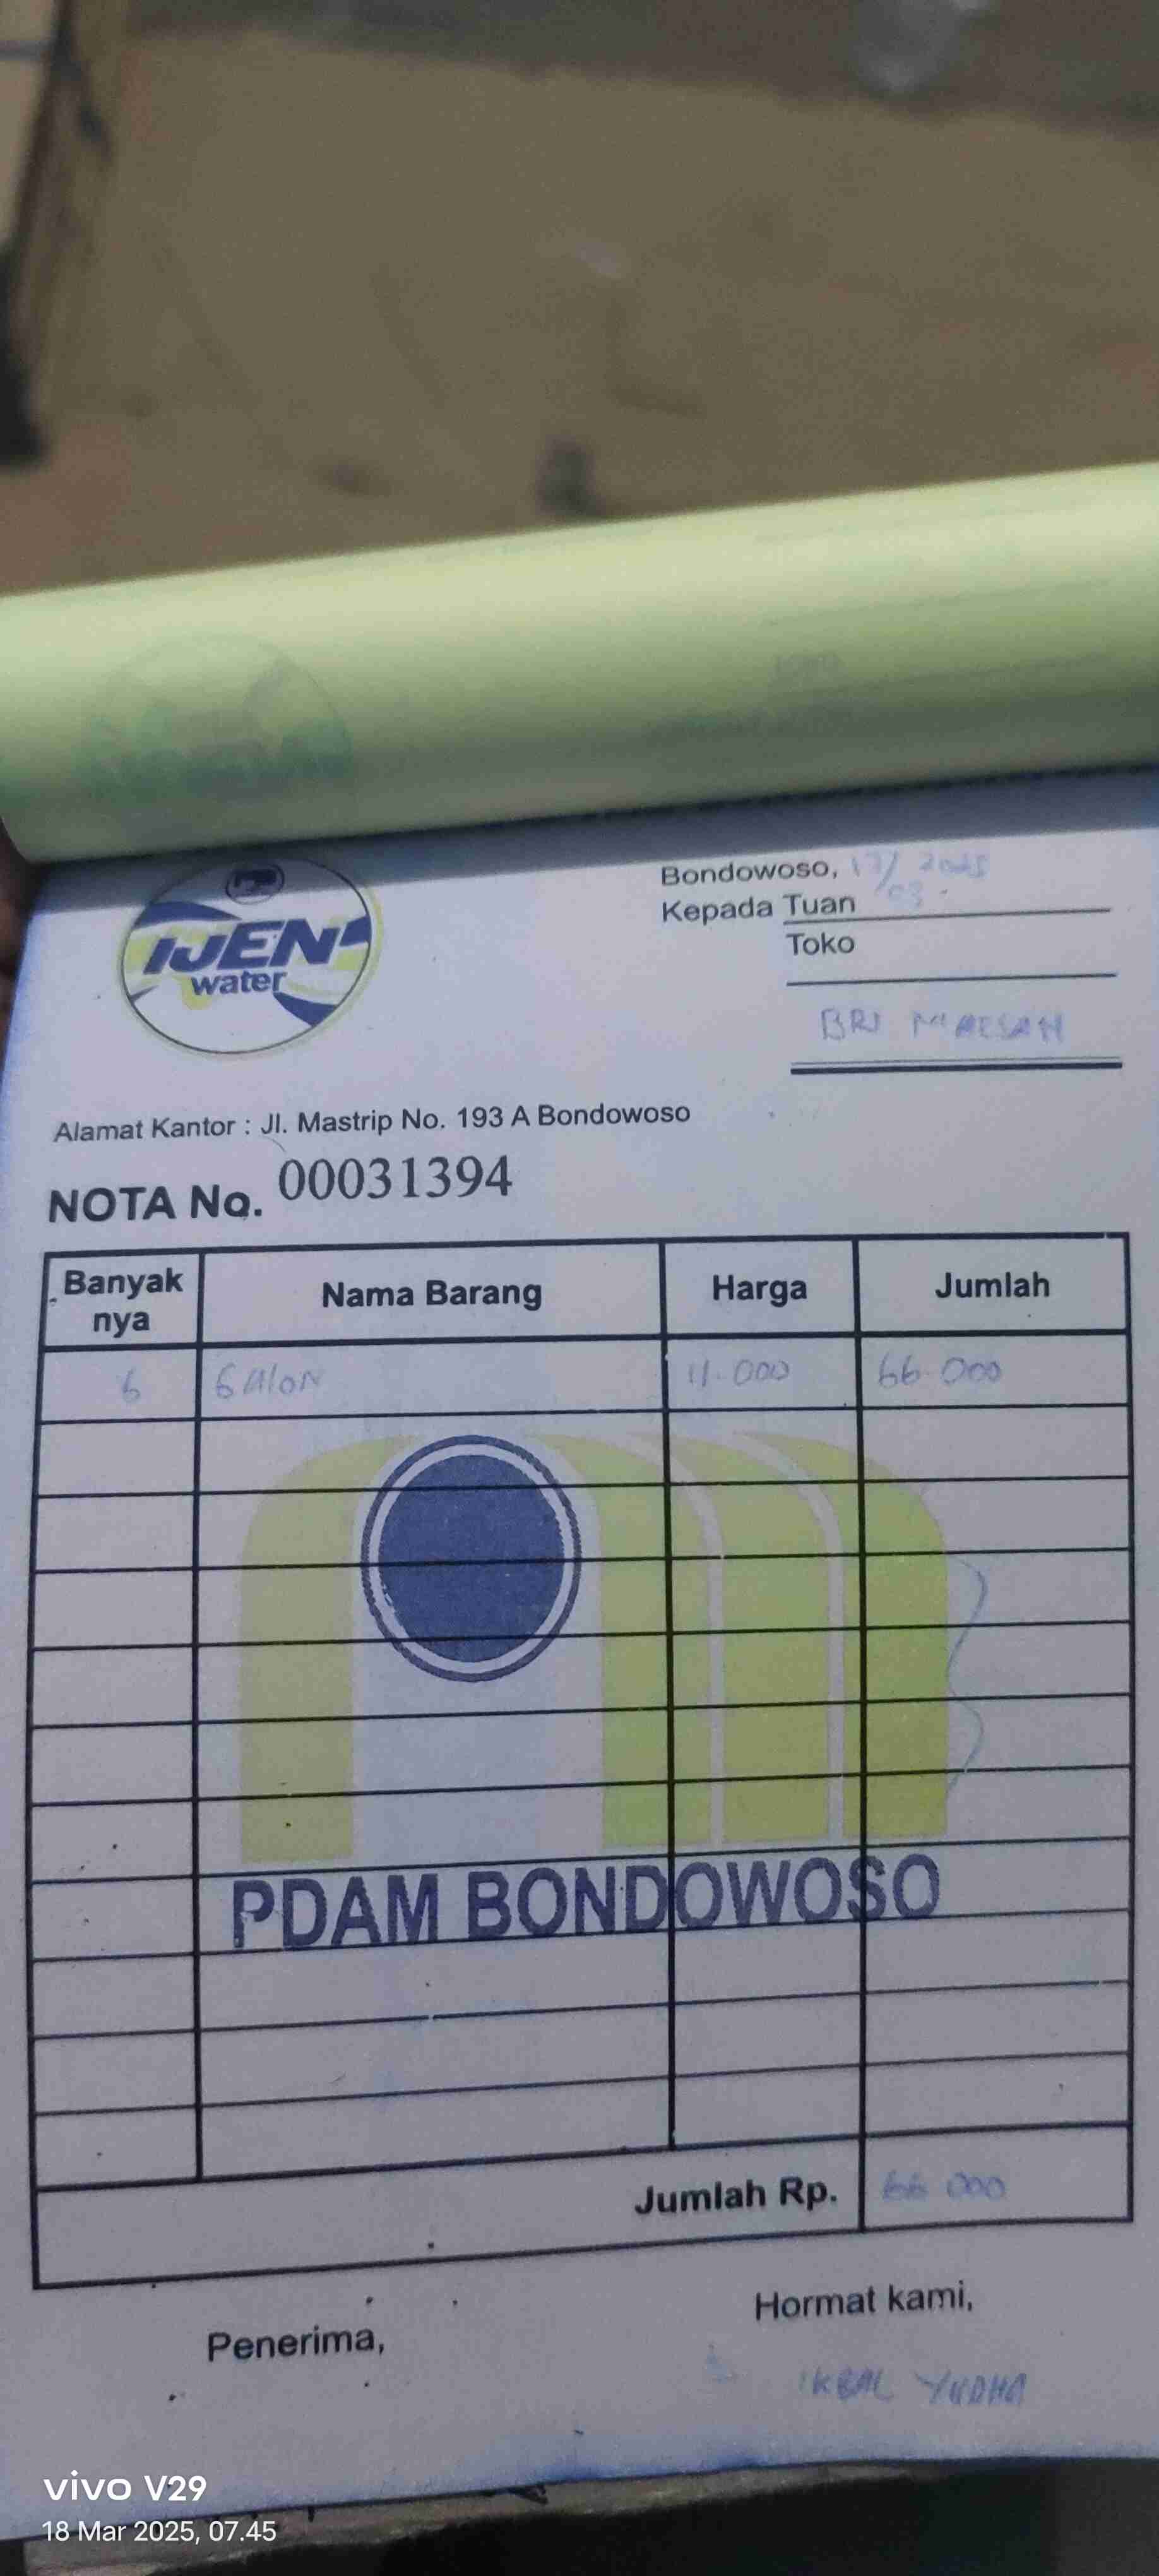 IJEN
water
Bondowoso, 17/03 2025
Kepada Tuan
Toko
BRI MAESAN
Alamat Kantor : Jl. Mastrip No. 193 A Bondowoso
NOTA No. 00031394
Banyak nya Nama Barang Harga Jumlah
6 GAlON 11.000 66.000
PDAM BONDOWOSO
Jumlah Rp. 66 000
Penerima, Hormat kami,
IKBAL YUDHA
vivo V29
18 Mar 2025, 07.45